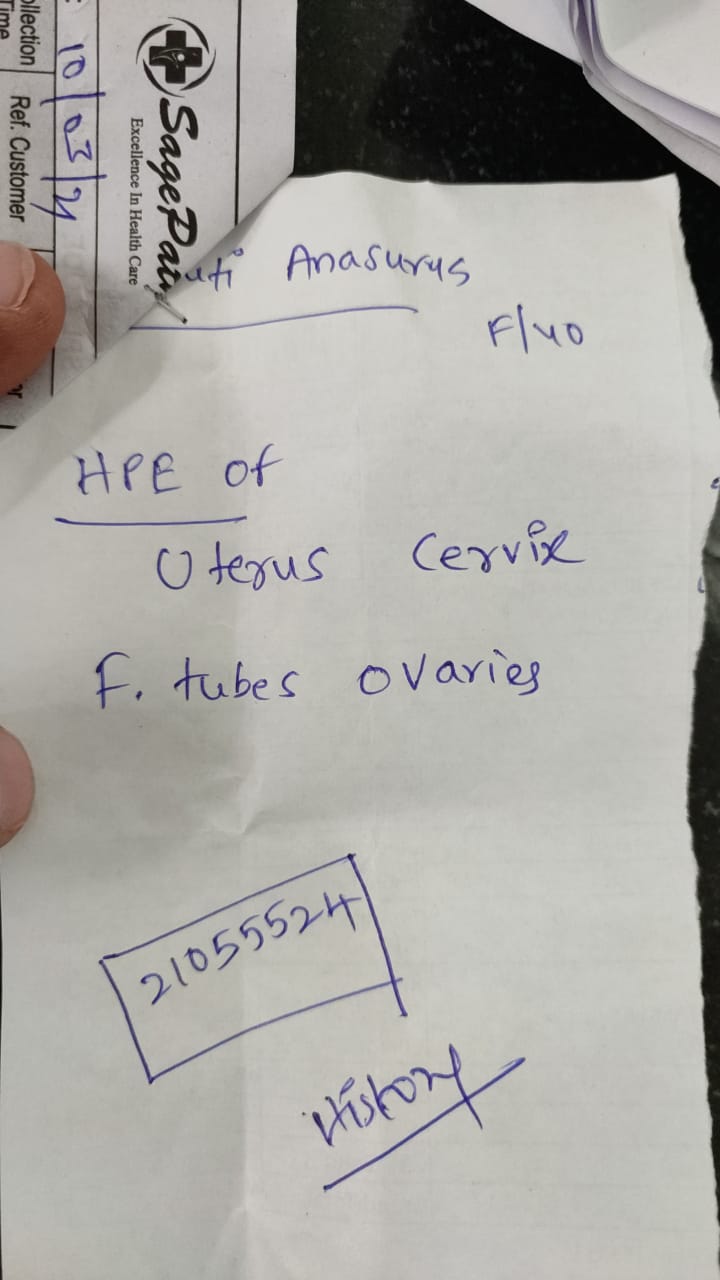 ollection
Time
Ref. Customer
10/03/21
SagePat
Excellence In Health Care
uti Anasurus
F/40
HPE of
Uterus Cervix
F. tubes ovaries
21055524
History